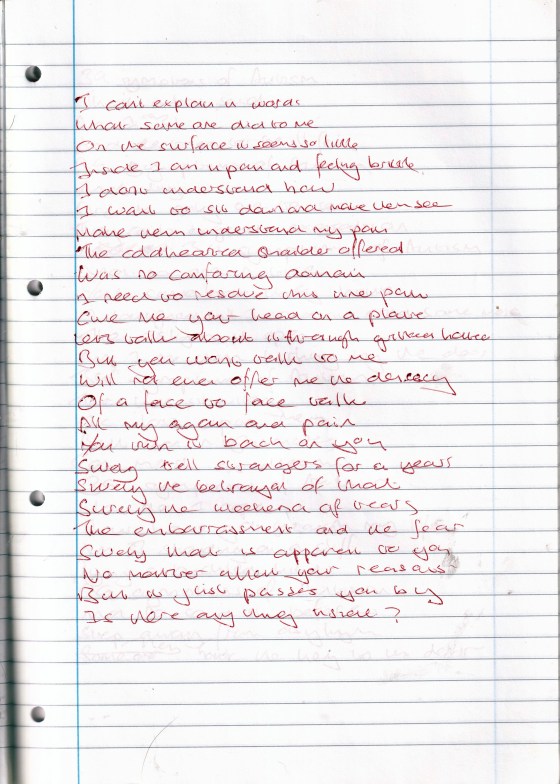 I can't explain in words
What someone did to me
On the surface it seems so little
Inside I am in pain and feeling brittle
I don't understand how
I want to sit down and make them see
Make them understand my pain
The coldhearted shoulder offered
Was no comforting domain
I need to resolve this one pain
Give me your head on a plate
Let's talk about it through
But you won't talk to me
Will not even offer me the decency
Of a face to face talk
All my again and pain
You turn it back on you
Surely tell strangers for a years
Surely the betrayal of that
Surely the weekend of tears
The embarrassment and the fear
Surely that is apparent to you
No matter your reasons
But it just passes you by
Is there anything inside?